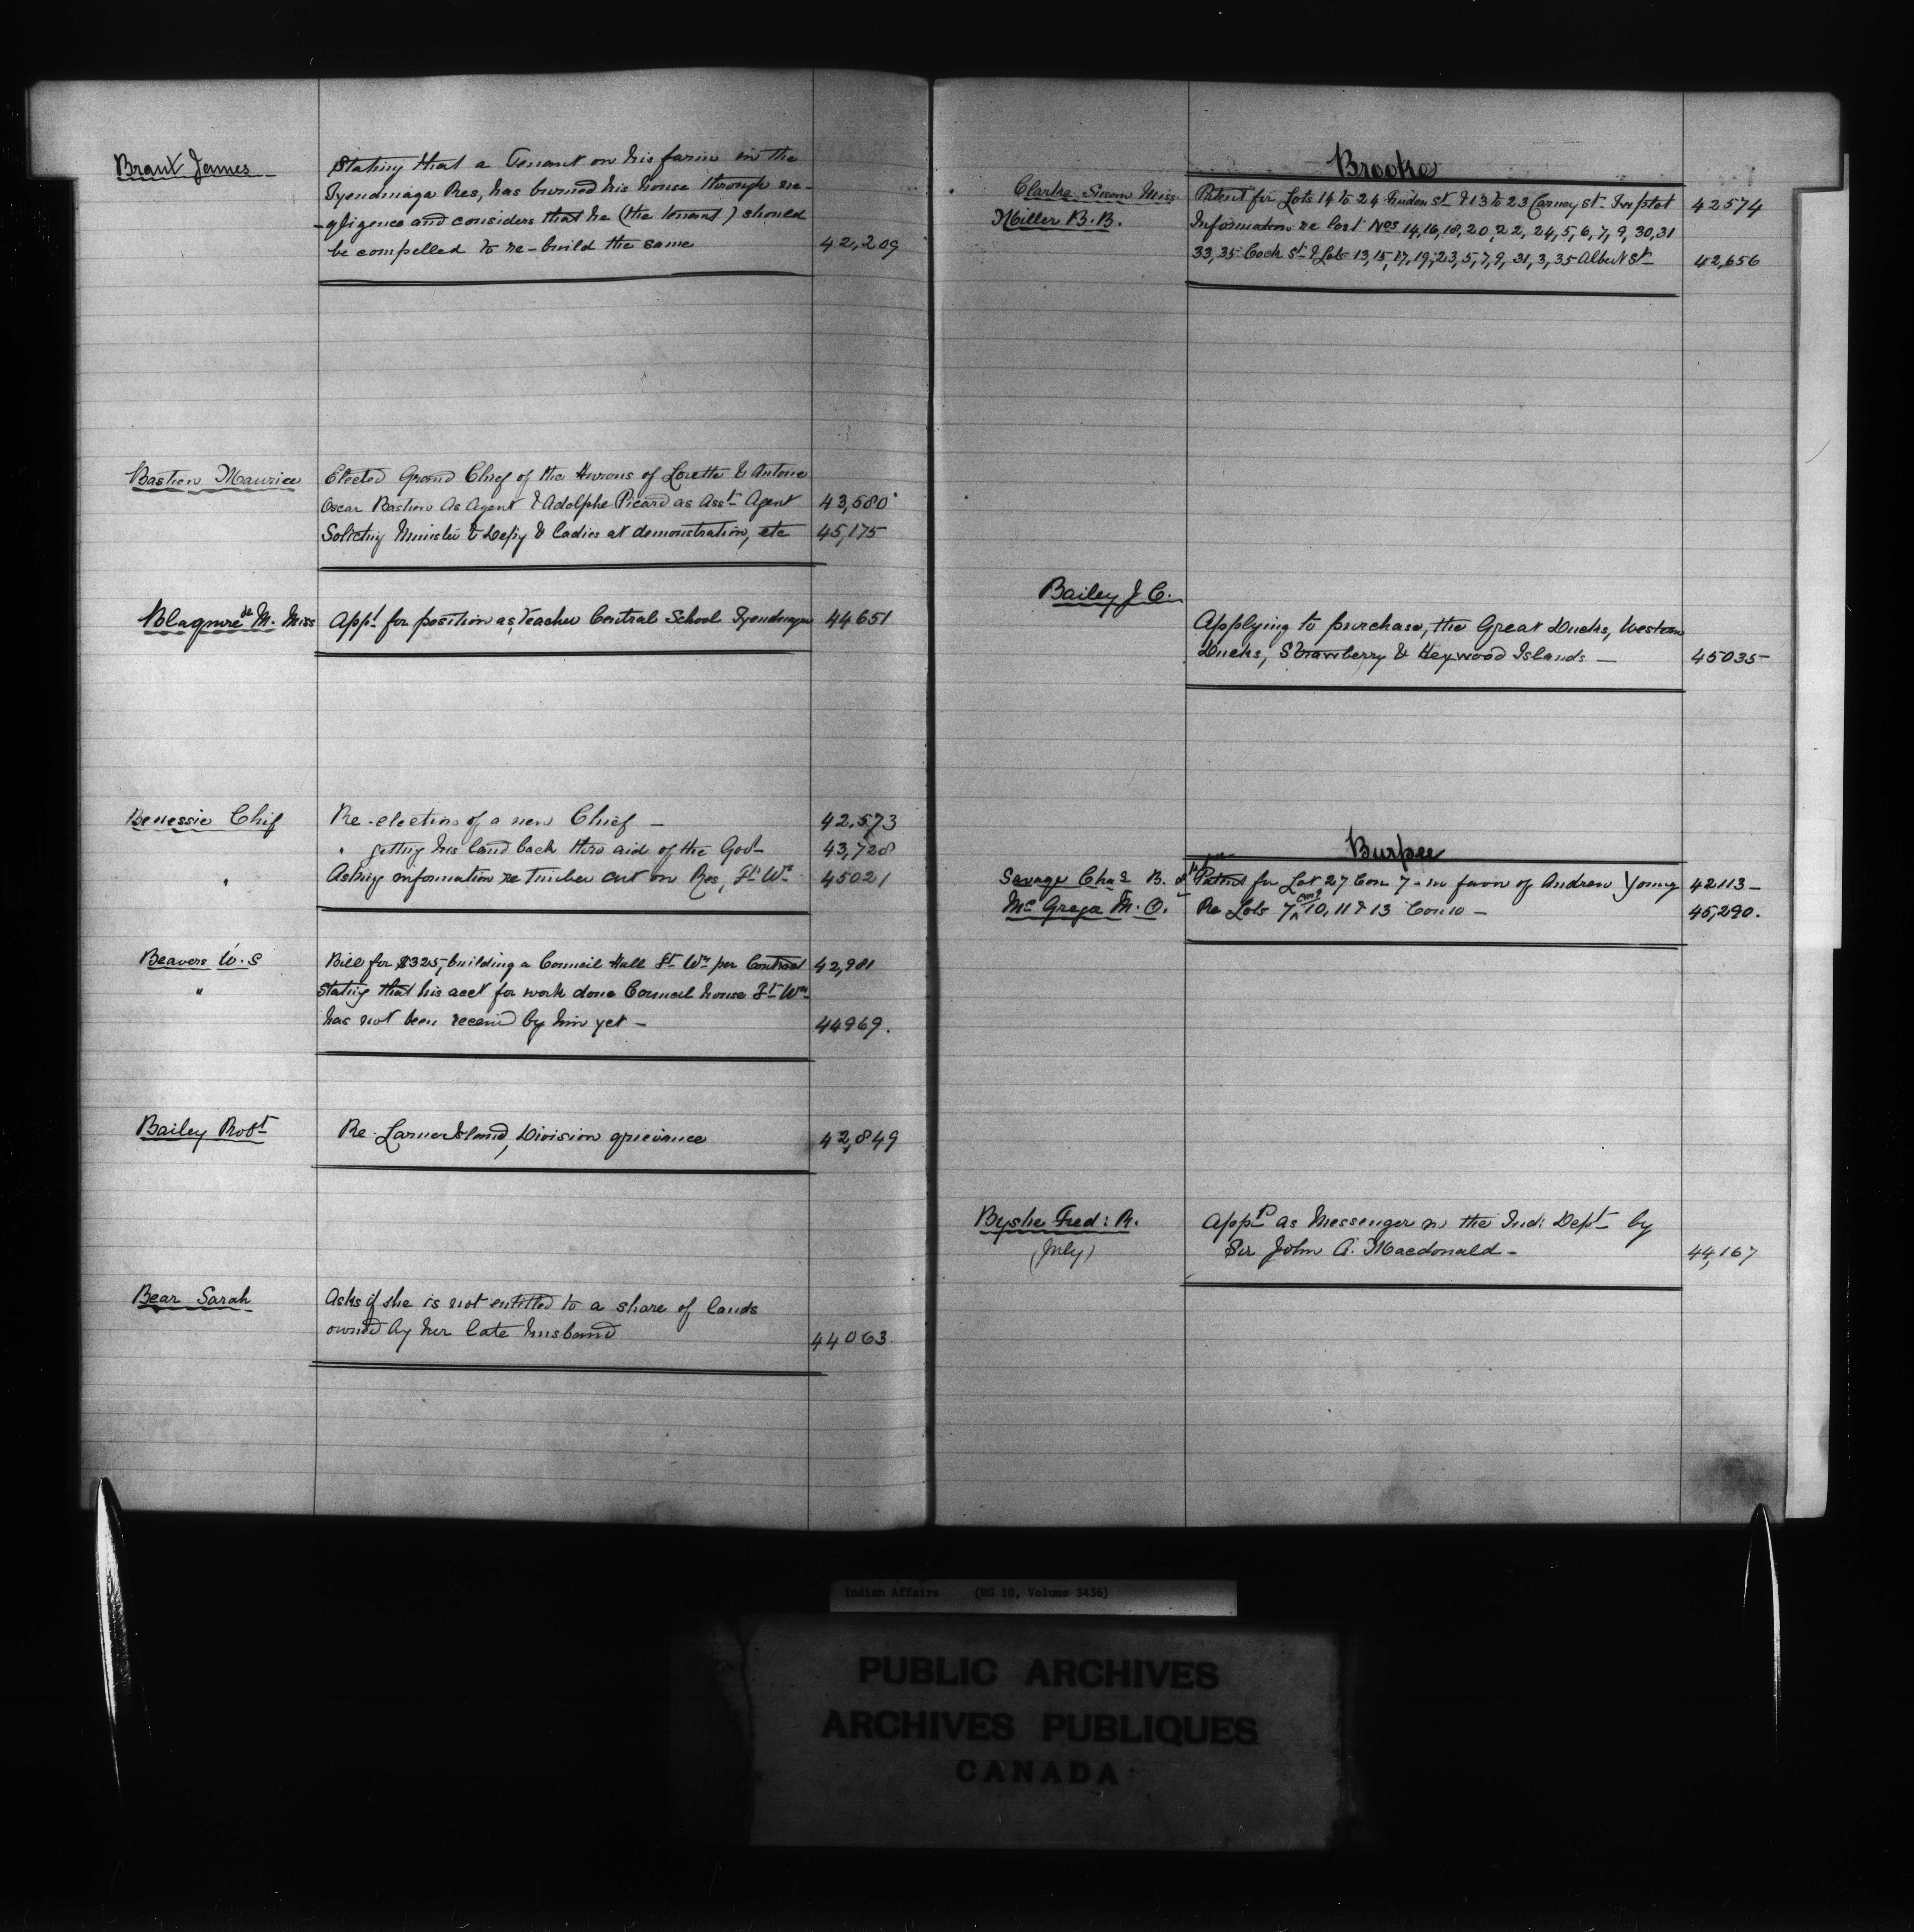 Brant James
Stating that a Tenant on his farm in the
Tyendinaga Res, has burned his house through ne-
-gligence and considers that he (the tenant) should
be compelled to re-build the same 42,209
Bastien Maurice
Elected Grand Chief of the Hurons of Lorette & Antoine
Oscar Bastien As Agent & Adolphe Picard as Asst Agent 43,580
Soliciting Minister & Depy & Ladies at demonstration, etc 45,175
Blaquire de M. Miss Appt for position as Teacher Central School Tyendinaga 44651
Benessie Chief Re-election of a new Chief - 42,573
" getting his land back thro aid of the Govt 43,728
" Asking information re timber cut on Res, Ft Wm 45021
Beavers W. S Bill for $325, building a Council Hall Ft Wm per Contract 42,981
" Stating that his acct for work done Council house Ft Wm
has not been received by him yet - 44969.
Bailey Robt Re. Island, Division grievance 42,849
Bear Sarah Asks if she is not entitled to a share of lands
owned by her late husband 44063
Brooke
Clarke Susan Miss Patent for Lots 14 to 24 St & 13 to 23 Carney St. Town plot 42574
Miller B. B. Information re lost Nos 14, 16, 18, 20, 22, 24, 5, 6, 7, 9, 30, 31
33, 35 Cock St & Lots 13, 15, 17, 19, 23, 5, 7, 9, 31, 3, 35 Albert St 42,656
Bailey J. C.
Applying to purchase, the Great Ducks, Western
Ducks, Strawberry & Heywood Islands - 45035
Burpee
Savage Chas B. Patent for Lot 27 Con 7 - in favor of Andrew Young 42113 -
Mc Gregor M. O. Re Lots 7, 10, 11 & 13 Con 10 - 45,290.
Byshe Fred: R. Appd as Messenger in the Ind: Dept by
(July) Sir John A. Macdonald - 44,167
Indian Affairs (RG 10, Volume 3436)
PUBLIC ARCHIVES
ARCHIVES PUBLIQUES
CANADA